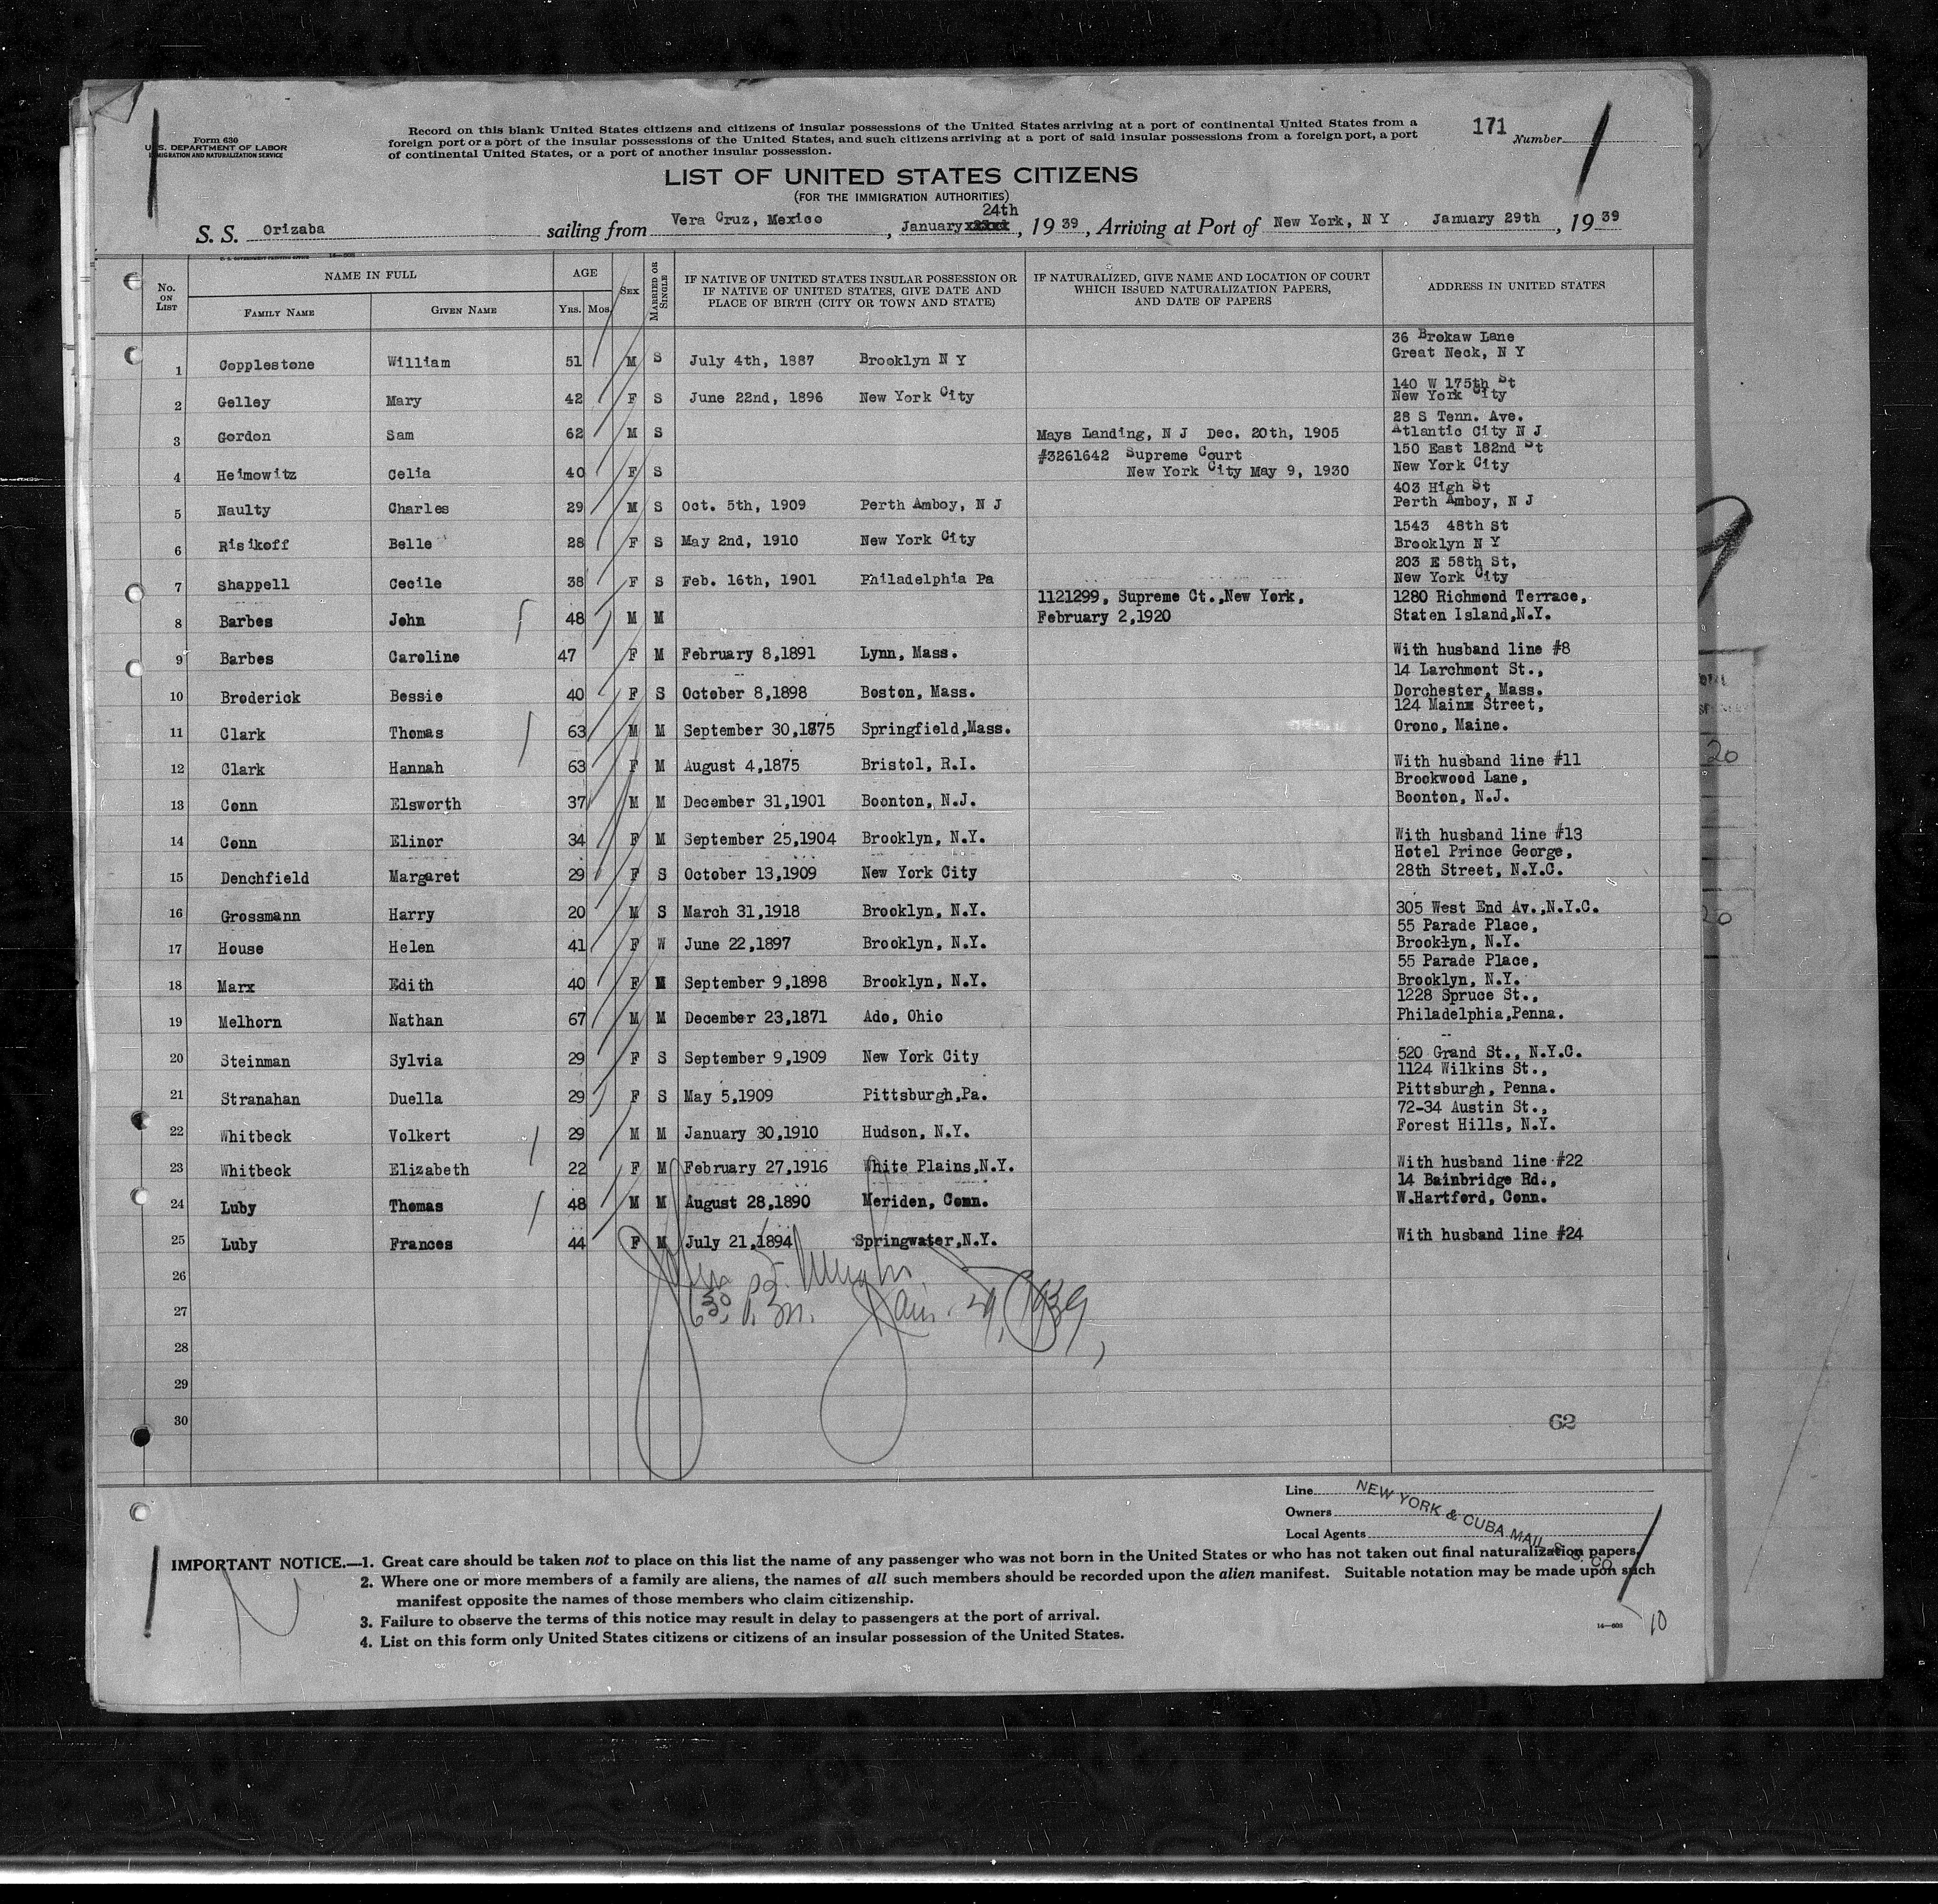 Form 630
U. S. DEPARTMENT OF LABOR
IMMIGRATION AND NATURALIZATION SERVICE
Record on this blank United States citizens and citizens of insular possessions of the United States arriving at a port of continental United States from a
foreign port or a port of the insular possessions of the United States, and such citizens arriving at a port of said insular possessions from a foreign port, a port
of continental United States, or a port of another insular possession.
171
Number
LIST OF UNITED STATES CITIZENS
(FOR THE IMMIGRATION AUTHORITIES)
24th
S. S. Orizaba sailing from Vera Cruz, Mexico, January, 1939, Arriving at Port of New York, N Y January 29th, 1939
No. ON LIST
NAME IN FULL
FAMILY NAME
GIVEN NAME
AGE
YRS. MOS.
SEX
MARRIED OR SINGLE
IF NATIVE OF UNITED STATES INSULAR POSSESSION OR
IF NATIVE OF UNITED STATES, GIVE DATE AND
PLACE OF BIRTH (CITY OR TOWN AND STATE)
IF NATURALIZED, GIVE NAME AND LOCATION OF COURT
WHICH ISSUED NATURALIZATION PAPERS,
AND DATE OF PAPERS
ADDRESS IN UNITED STATES
1 Copplestone William 51 M S July 4th, 1887 Brooklyn N Y 36 Brokaw Lane
Great Neck, N Y
2 Gelley Mary 42 F S June 22nd, 1896 New York City 140 W 175th St
New York City
3 Gordon Sam 62 M S Mays Landing, N J Dec. 20th, 1905 28 S Tenn. Ave.
Atlantic City N J
4 Heimowitz Celia 40 F S #3261642 Supreme Court
New York City May 9, 1930 150 East 182nd St
New York City
5 Naulty Charles 29 M S Oct. 5th, 1909 Perth Amboy, N J 403 High St
Perth Amboy, N J
6 Risikoff Belle 28 F S May 2nd, 1910 New York City 1543 48th St
Brooklyn N Y
7 Shappell Cecile 38 F S Feb. 16th, 1901 Philadelphia Pa 203 E 58th St,
New York City
8 Barbes John 48 M M 1121299, Supreme Ct.,New York,
February 2,1920 1280 Richmond Terrace,
Staten Island,N.Y.
9 Barbes Caroline 47 F M February 8,1891 Lynn, Mass. With husband line #8
10 Broderick Bessie 40 F S October 8,1898 Boston, Mass. 14 Larchmont St.,
Dorchester, Mass.
11 Clark Thomas 63 M M September 30,1875 Springfield,Mass. 124 Main Street,
Orono, Maine.
12 Clark Hannah 63 F M August 4,1875 Bristol, R.I. With husband line #11
13 Conn Elsworth 37 M M December 31,1901 Boonton, N.J. Brookwood Lane,
Boonton, N.J.
14 Conn Elinor 34 F M September 25,1904 Brooklyn, N.Y. With husband line #13
15 Denchfield Margaret 29 F S October 13,1909 New York City Hotel Prince George,
28th Street, N.Y.C.
16 Grossmann Harry 20 M S March 31,1918 Brooklyn, N.Y. 305 West End Av.,N.Y.C.
17 House Helen 41 F W June 22,1897 Brooklyn, N.Y. 55 Parade Place,
Brooklyn, N.Y.
18 Marx Edith 40 F M September 9,1898 Brooklyn, N.Y. 55 Parade Place,
Brooklyn, N.Y.
19 Melhorn Nathan 67 M M December 23,1871 Ado, Ohio 1228 Spruce St.,
Philadelphia,Penna.
20 Steinman Sylvia 29 F S September 9,1909 New York City 520 Grand St., N.Y.C.
21 Stranahan Duella 29 F S May 5,1909 Pittsburgh,Pa. 1124 Wilkins St.,
Pittsburgh, Penna.
22 Whitbeck Volkert 29 M M January 30,1910 Hudson, N.Y. 72-34 Austin St.,
Forest Hills, N.Y.
23 Whitbeck Elizabeth 22 F M February 27,1916 White Plains,N.Y. With husband line #22
24 Luby Thomas 48 M M August 28,1890 Meriden, Conn. 14 Bainbridge Rd.,
W.Hartford, Conn.
25 Luby Frances 44 F M July 21,1894 Springwater,N.Y. With husband line #24
26
27
28
29
30
630 P.M. Jan. 29, 1939
62
Line
Owners
Local Agents
NEW YORK & CUBA MAIL S. S. CO.
IMPORTANT NOTICE.—1. Great care should be taken not to place on this list the name of any passenger who was not born in the United States or who has not taken out final naturalization papers.
2. Where one or more members of a family are aliens, the names of all such members should be recorded upon the alien manifest. Suitable notation may be made upon such
manifest opposite the names of those members who claim citizenship.
3. Failure to observe the terms of this notice may result in delay to passengers at the port of arrival.
4. List on this form only United States citizens or citizens of an insular possession of the United States.
10
20